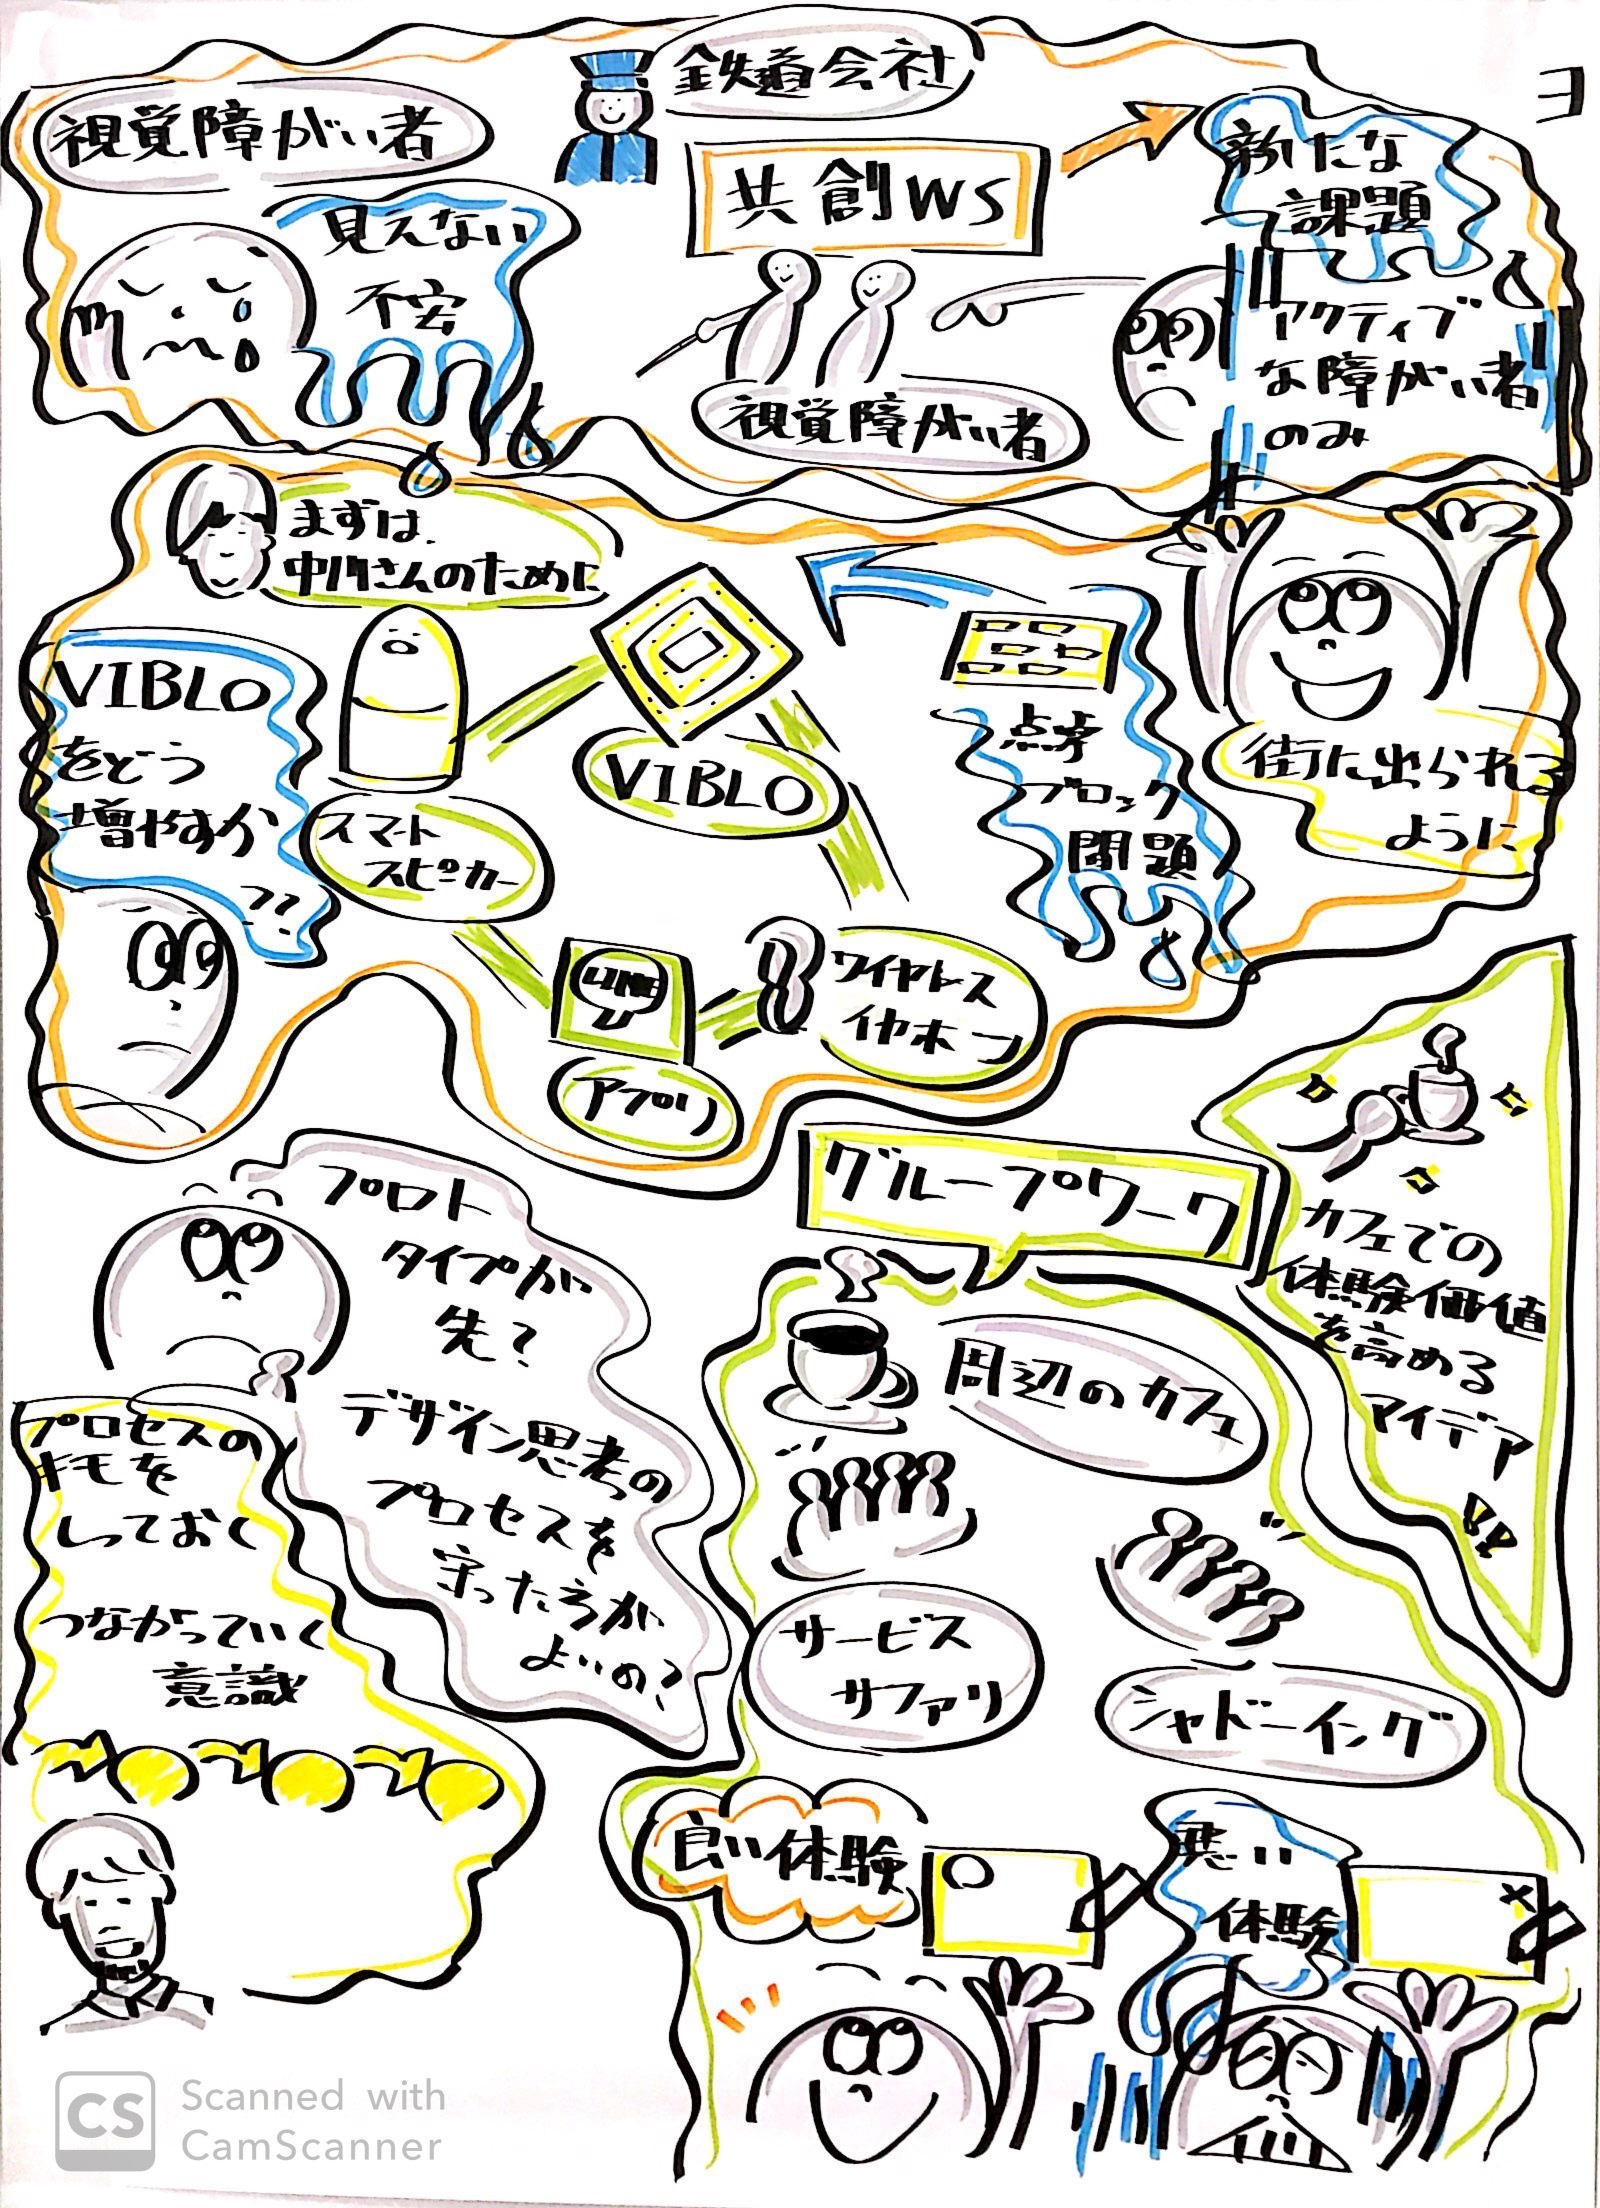 視覚障がい者
鉄道会社
共創WS
新たな
課題
ヨ
見えない
不安
視覚障がい者
アクティブ
な障がい者
のみ
まずは、
中川さんのために
VIBLO
をどう
増やすか
??
スマート
スピーカー
VIBLO
点字
ブロック
問題
街に出られる
ように
LINE
アプリ
ワイヤレス
イヤホン
グループワーク
カフェでの
体験価値
を高める
アイデア
!!
プロト
タイプが
先?
デザイン思考の
プロセスを
守ったうが
よいの?
プロセスの
キモを
しっておく
つながっていく
意識
周辺のカフェ
サービス
サファリ
シャドーイング
良い体験
悪い
体験
CS
Scanned with
CamScanner